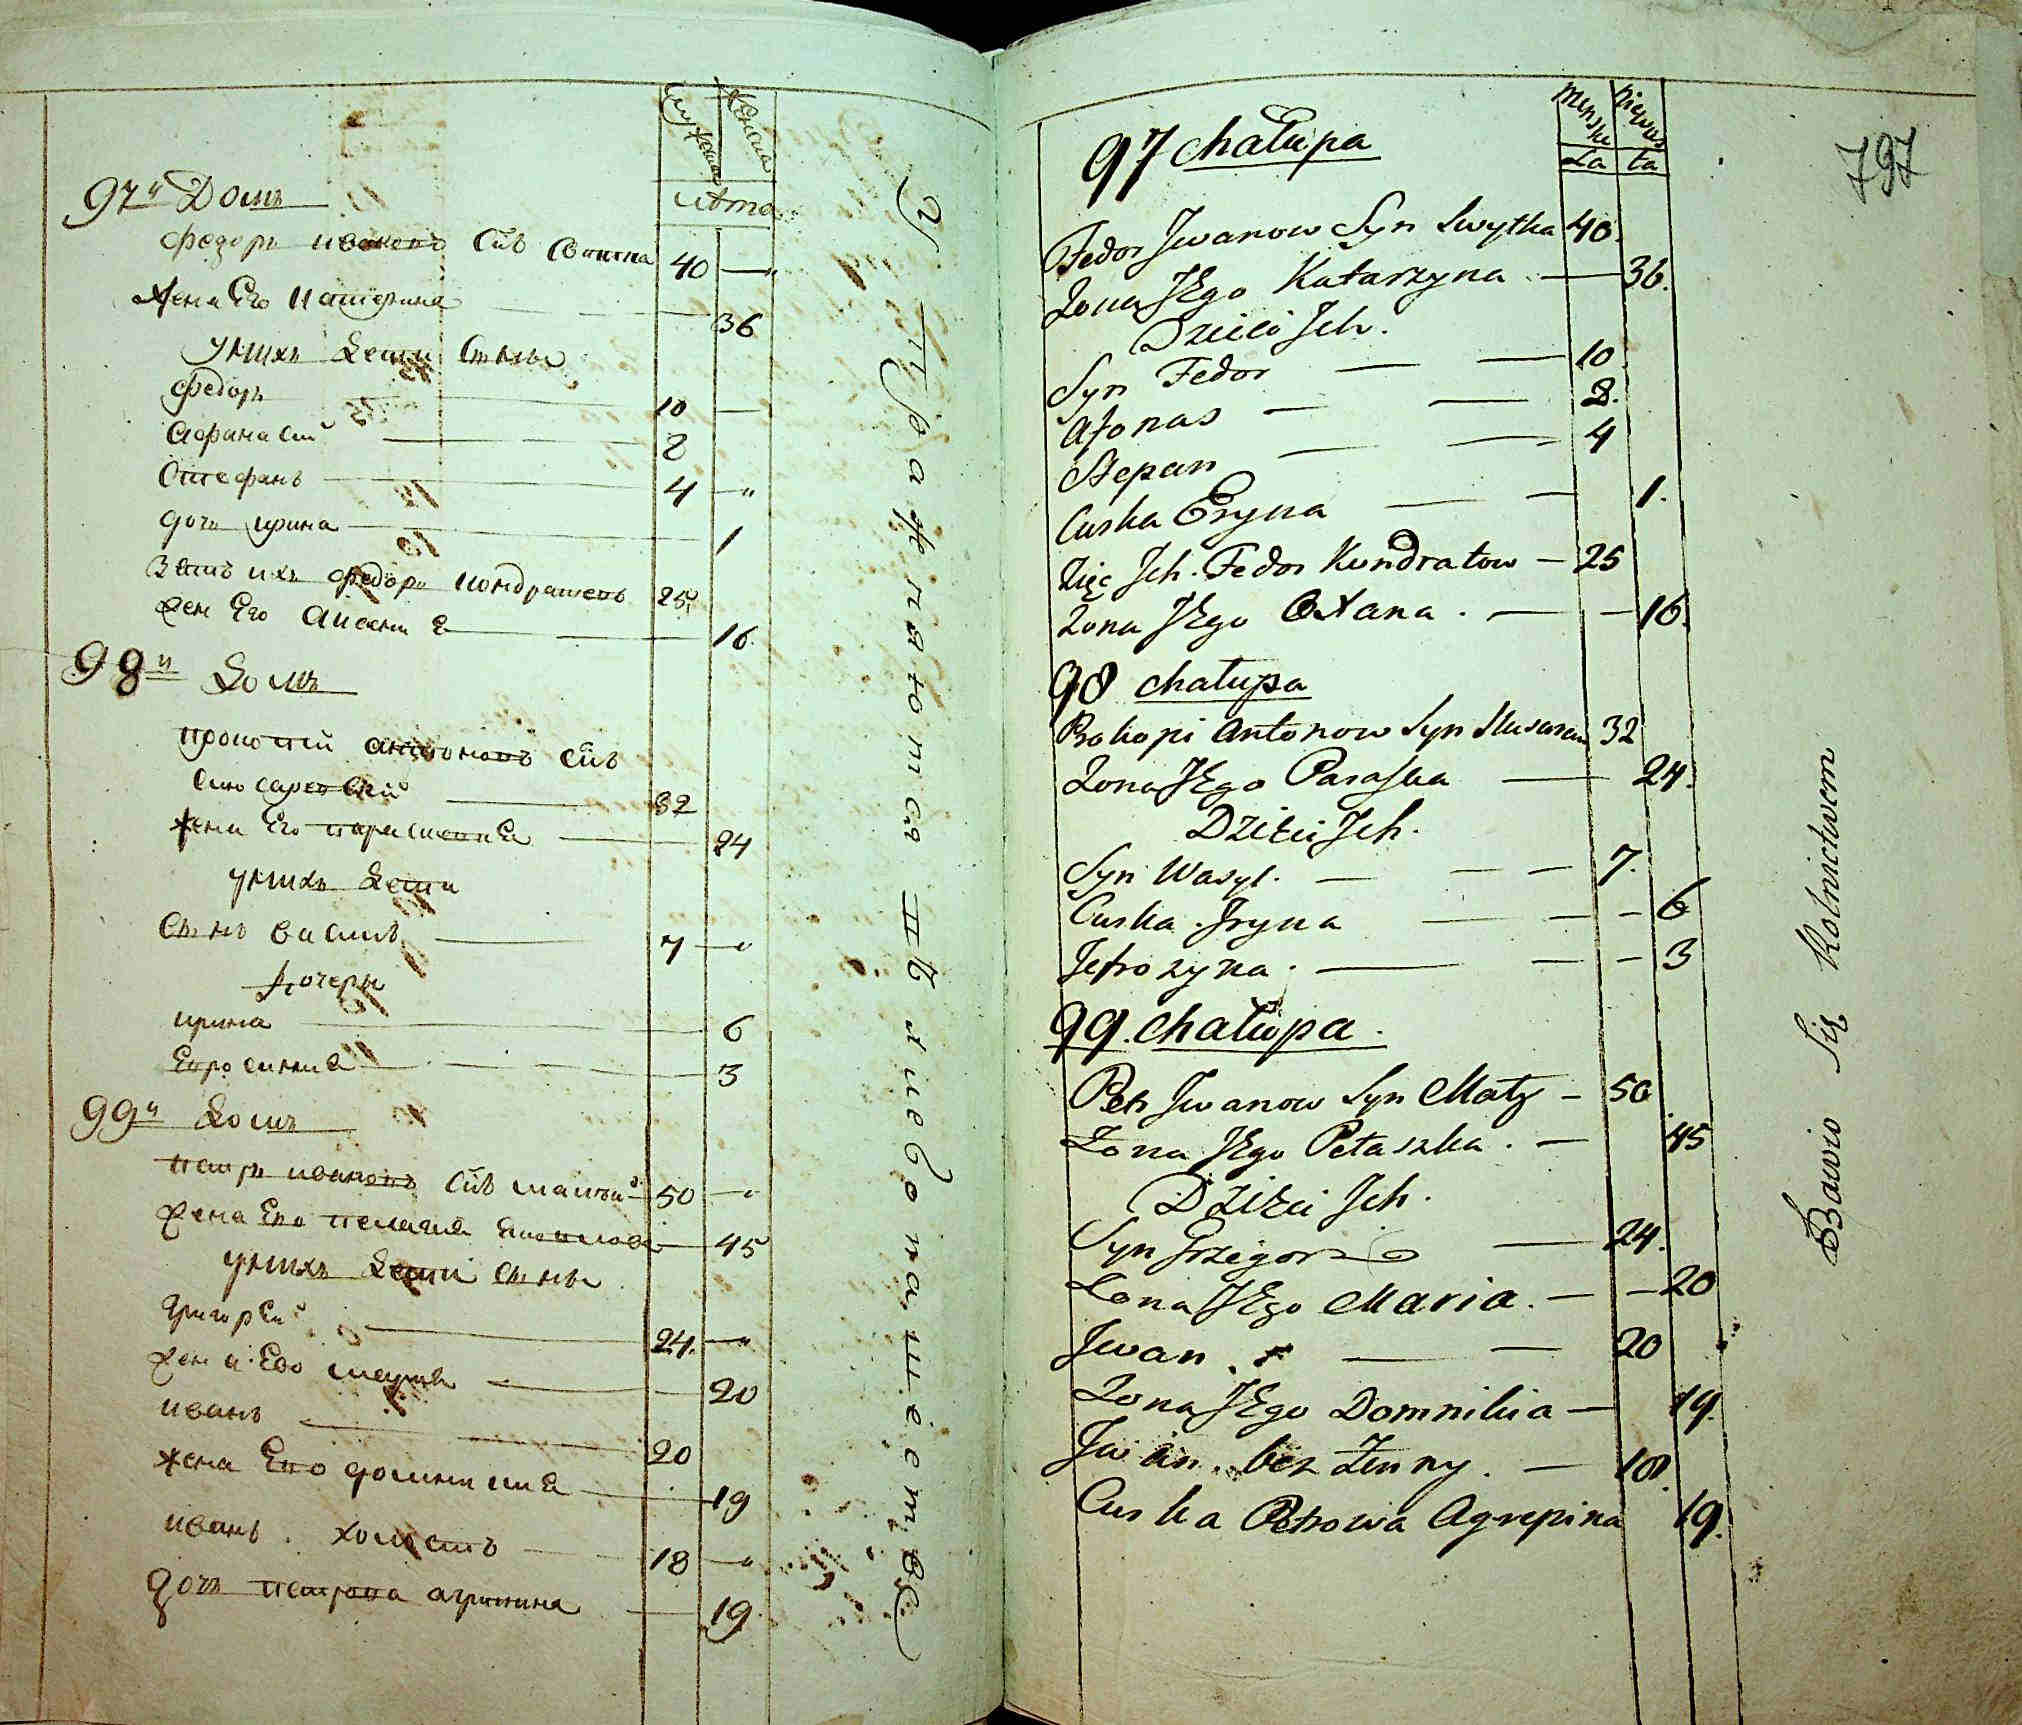 мужеска женска
лѣта
97й Домъ
Федоръ Ивановъ Сн҃ъ Свитка 40 —"
Жена Его Катерина 36
У нихъ Дети Сыны
Федоръ 10 —
Афанасий 2
Стефанъ 4 —"
дочь ирина 1
Зять ихъ Федоръ Кондратовъ 25
жен Его 16
98й Домъ
Прокопий Антоновъ Сн҃ъ
Слюсаревский 32
жена Его Парасковия 24
У нихъ Дети
Сынъ Василь 7 —"
Дочери
ирина 6
Ефросиния 3
99й Домъ
Петръ Ивановъ Сн҃ъ 50 —"
Жена Его Пелагия 45
У нихъ Дети Сыны
Григорей 24. —"
жена Его Мария 20
Иванъ 20
жена Его Домникия 19
Иванъ . холостъ 18 —"
Дочь Петрова агрипина 19
Упражняются в хлебопашестве
797
Męska Niewias
La ta
97 chałupa
Fedor Jwanow Syn Swytka 40.
Żona JEgo Katarzyna — 36.
Dzieci Jch.
Syn Fedor — — 10
Afonas — — 2.
Stepan — — 4
Curka Eryna — — 1.
Zięć Jch. Fedor Kundratow — 25
Żona JEgo Oxana . — — 16.
98 chałupa
Prokopi Antonow Syn 32
Żona JEgo Paraska — 24.
Dzieci Jch.
Syn Wasyl. — — — 7.
Curka Jryna — — — 6
Jefrozyna . — — — 3
99. chałupa.
Petr Jwanow Syn Maty — 50
Żona JEgo Petaszka . — 45
Dzieci Jch.
Syn Grzegorz — 24.
Żona JEgo Maria. — — 20
Jwan . — — 20
Żona JEgo Domnikia — 19.
Jwan . bez Żenny . — 18.
Curka Petrowa Agrepina 19.
Bawio Się Rolnictwem